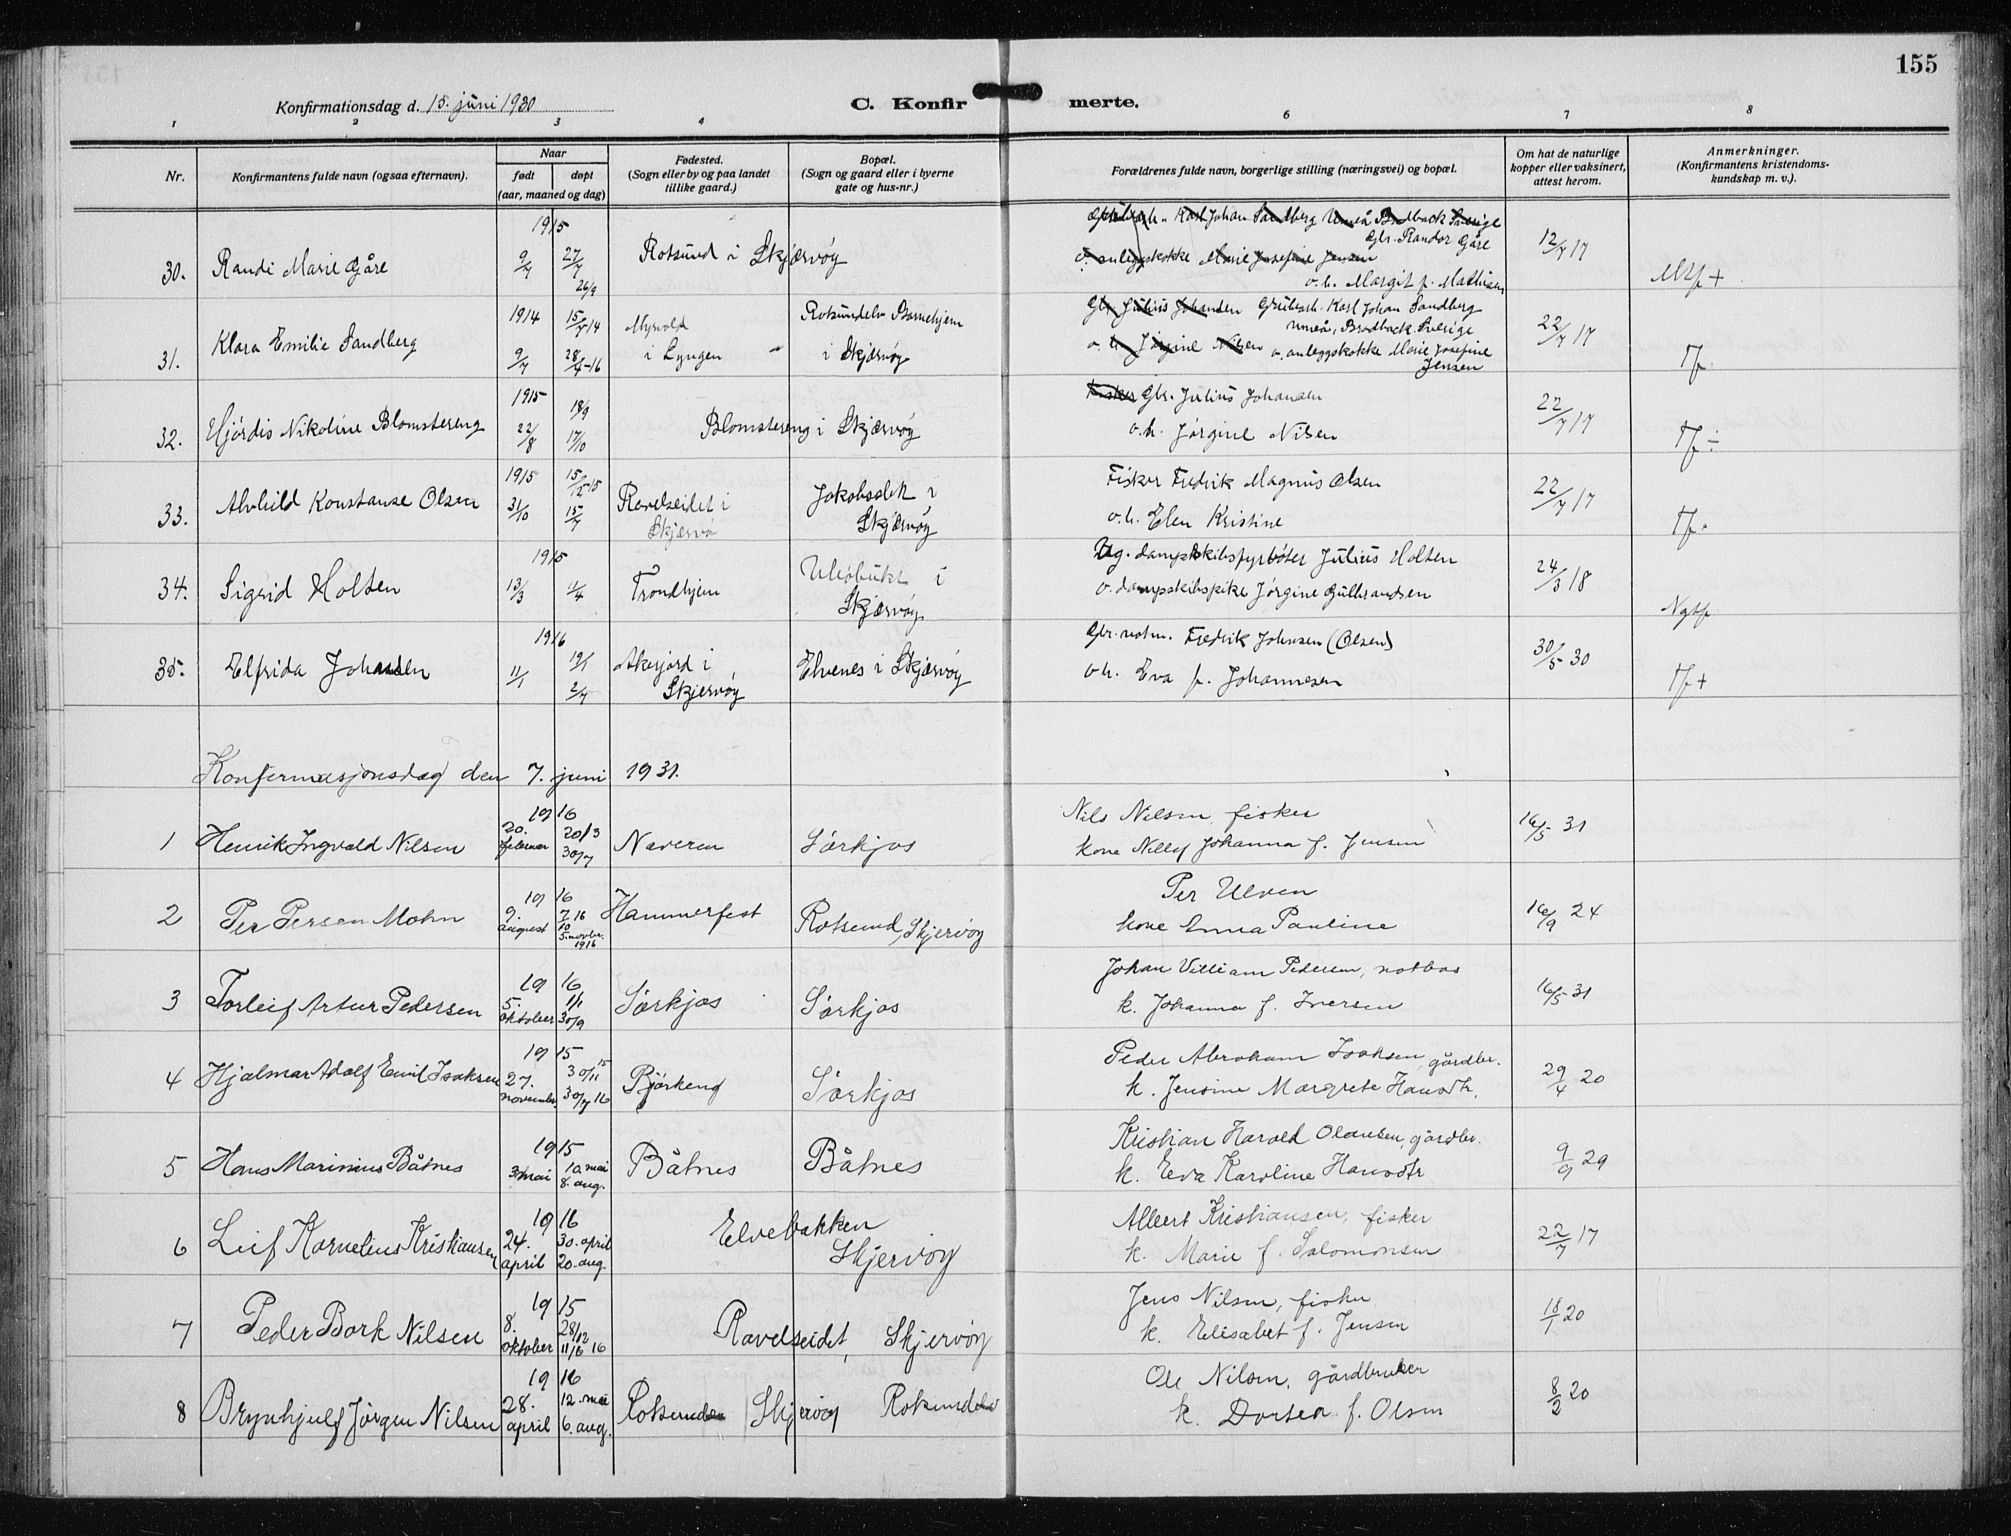 155
Konfirmationsdag d. 15. juni 1930
C. Konfirmerte.
1 2 3 4 6 7 8
Nr.
Konfirmantens fulde navn (ogsaa efternavn).
Naar
født døpt
(aar, maaned og dag)
Fødested.
(Sogn eller by og paa landet
tillike gaard.)
Bopæl.
(Sogn og gaard eller i byerne
gate og hus-nr.)
Forældrenes fulde navn, borgerlige stilling (næringsvei) og bopæl.
Om hat de naturlige
kopper eller vaksinert,
attest herom.
Anmerkninger.
(Konfirmantens kristendoms-
kundskap m. v.).
1915
Karl Johan Sandberg Umeå Brodback Sverige
Gbr. Randor Gåre
30. Randi Marie Gåre 9/7 27/7 26/9 Rotsund i Skjærvøy
o. anleggskokke Marie Josefine Jensen
o. h. Margit f. Mathisen
12/7 17
Mtf +
1914 15/7 14 Myrvold Rotsundelv Barnehjem
Gbr. Julius Johansen Grubearb. Karl Johan Sandberg
Umeå, Brodback, Sverige
31. Klara Emilie Sandberg 9/7 28/4-16 i Lyngen i Skjærvøy
o. h. Jørgine Nilsen o. anleggskokke Marie Josefine
Jensen
22/7 17
Tf
1915 18/9
Fisker Gbr. Julius Johansen
32. Hjørdis Nikoline Blomstereng 22/8 17/10 Blomstereng i Skjærvøy
o. h. Jørgine Nilsen
22/7 17
Tf ÷
1915 15/12-15
Fisker Fredrik Magnus Olsen
33. Alvhild Konstanse Olsen 31/10 15/7 Ravelseidet i Skjærvø Jakobselv i Skjærvøy
o. h. Elen Kristine
22/7 17
Tf.
1915
Ug. dampskibsfyrbøter Julius Holten
34. Sigrid Holten 13/3 1/4 Trondhjem Uløbukt i Skjærvøy
o. dampskibspike Jørgine Gulbrandsen
24/3 18
Ngtf
1916
Gbr. notm. Fredrik Johnsen (Olsen)
35. Elfrida Johansen 11/1 19/1 2/7 Akkejord i Skjervøy Elvenes i Skjærvøy
o h. Eva f. Johannesen
30/5 30
Tf +
Konfirmasjonsdag den 7. juni 1931.
1916
1 Henrik Ingvald Nilsen 20. februar 20/3 30/7 Naveren Sørkjos
Nils Nilsen, fisker
kone Nelly Johanna f. Jensen
16/5 31
1916
2 Per Persen Mohn 9. august 7/10 16 5. novbr. 1916 Hammerfest Rotsund, Skjervøy
Per Ulven
kone Anna Pauline
16/9 24
1916
3 Torleif Artur Pedersen 5. oktober 1/1 30/9 Sørkjos Sørkjos
Johan Villiam Pedersen, notbas
k. Johanna f. Iversen
16/5 31
1915
4 Hjalmar Adolf Emil Isaksen 27. november 30/11 15 30/7 16 Bjørkeng Sørkjos
Peder Abraham Isaksen, gårdbr.
k. Jensine Margrete Hansdtr.
29/4 20
1915
5 Hans Marinius Båtnes 3. mai 10. mai 8. aug. Båtnes Båtnes
Kristian Harald Olaussen, gårdbr.
k. Eva Karoline Hansdtr
9/9 29
1916
6 Leif Kornelius Kristiansen 24. april 30. april 20. aug. Elvebakken Skjervøy
Albert Kristiansen, fisker
k. Marie f. Salomonsen
22/7 17
1915
7 Peder Bork Nilsen 8. oktober 28/12 11/6 16 Ravelseidet, Skjervøy
Jens Nilsen, fisker
k. Elisabet f. Jensen
18/1 20
1916
8 Brynhjulf Jørgen Nilsen 28. april 12. mai 6. aug. Rotsundelv Skjervøy Rotsundelv
Ole Nilsen, gårdbruker
k. Dortea f. Olsen
8/2 20